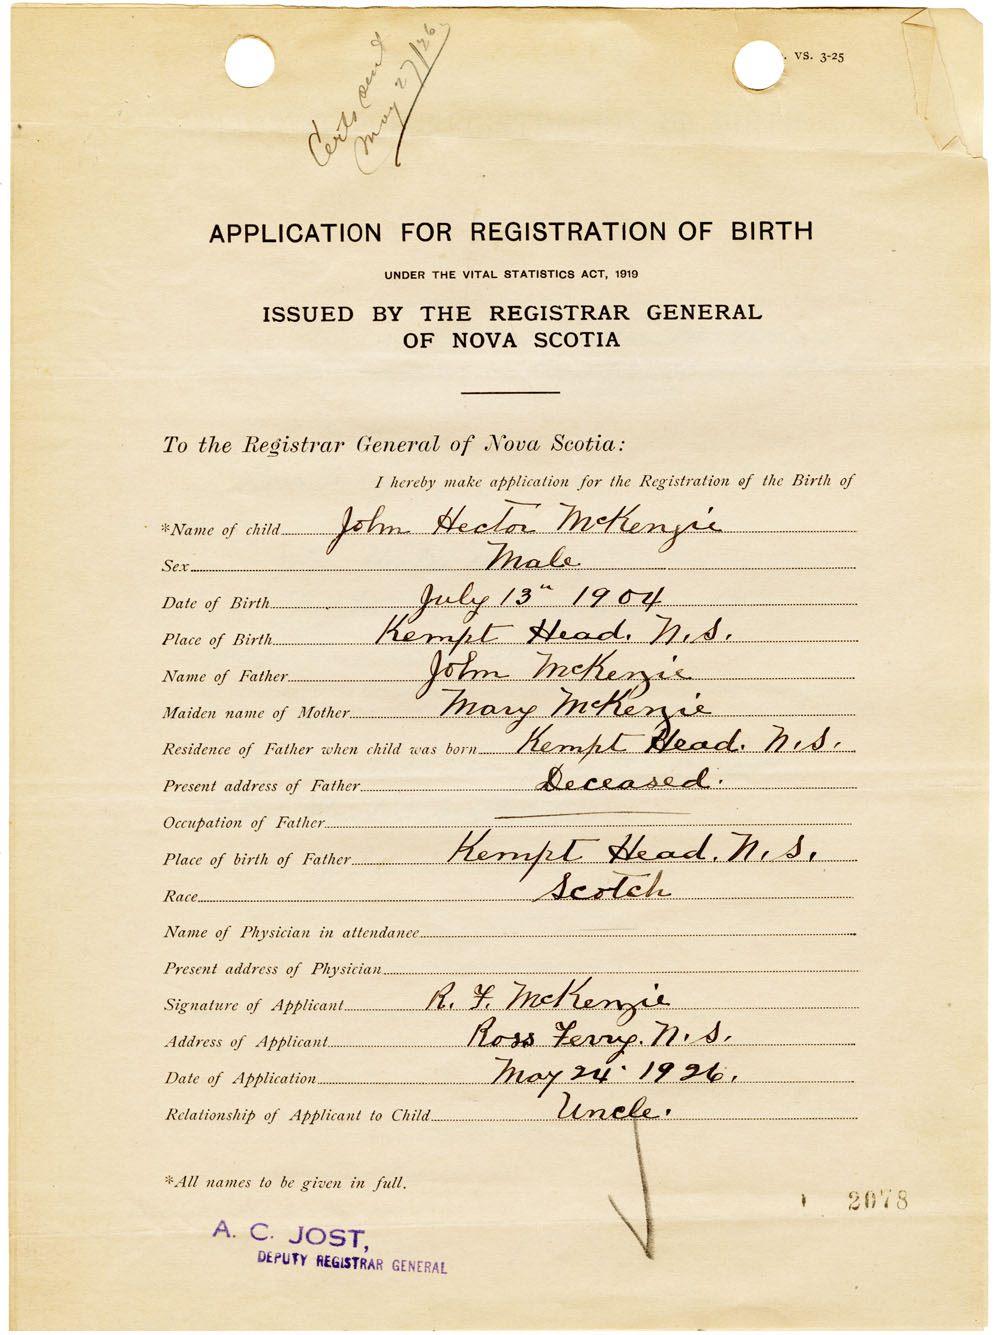 Certs sent
May 27/26
. VS. 3-25
APPLICATION FOR REGISTRATION OF BIRTH
UNDER THE VITAL STATISTICS ACT, 1919
ISSUED BY THE REGISTRAR GENERAL
OF NOVA SCOTIA
To the Registrar General of Nova Scotia:
I hereby make application for the Registration of the Birth of
*Name of child John Hector McKenzie
Sex Male
Date of Birth July 13th 1904
Place of Birth Kempt Head. N.S.
Name of Father John McKenzie
Maiden name of Mother Mary McKenzie
Residence of Father when child was born Kempt Head. N.S.
Present address of Father Deceased.
Occupation of Father
Place of birth of Father Kempt Head. N.S.
Race Scotch
Name of Physician in attendance
Present address of Physician
Signature of Applicant R. F. McKenzie
Address of Applicant Ross Ferry. N.S.
Date of Application May 24. 1926.
Relationship of Applicant to Child Uncle.
*All names to be given in full.
2078
A. C. JOST,
DEPUTY REGISTRAR GENERAL